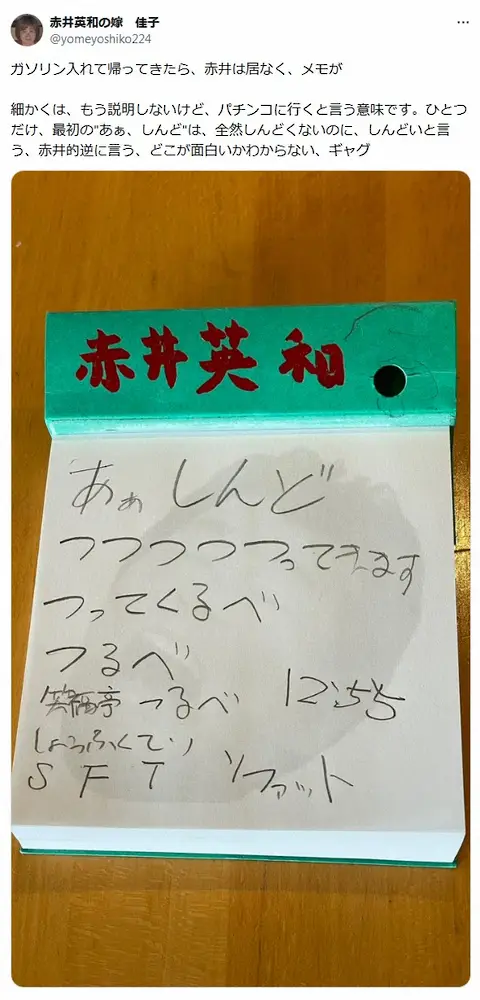 赤井英和の嫁　佳子
@yomeyoshiko224
ガソリン入れて帰ってきたら、赤井は居なく、メモが
細かくは、もう説明しないけど、パチンコに行くと言う意味です。ひとつ
だけ、最初の"あぁ、しんど"は、全然しんどくないのに、しんどいと言
う、赤井的逆に言う、どこが面白いかわからない、ギャグ
赤井英和
あぁ しんど
つつつつつってきます
つってくるべ
つるべ
笑福亭 つるべ 12:55
しょうふくてい
S F T ソファット